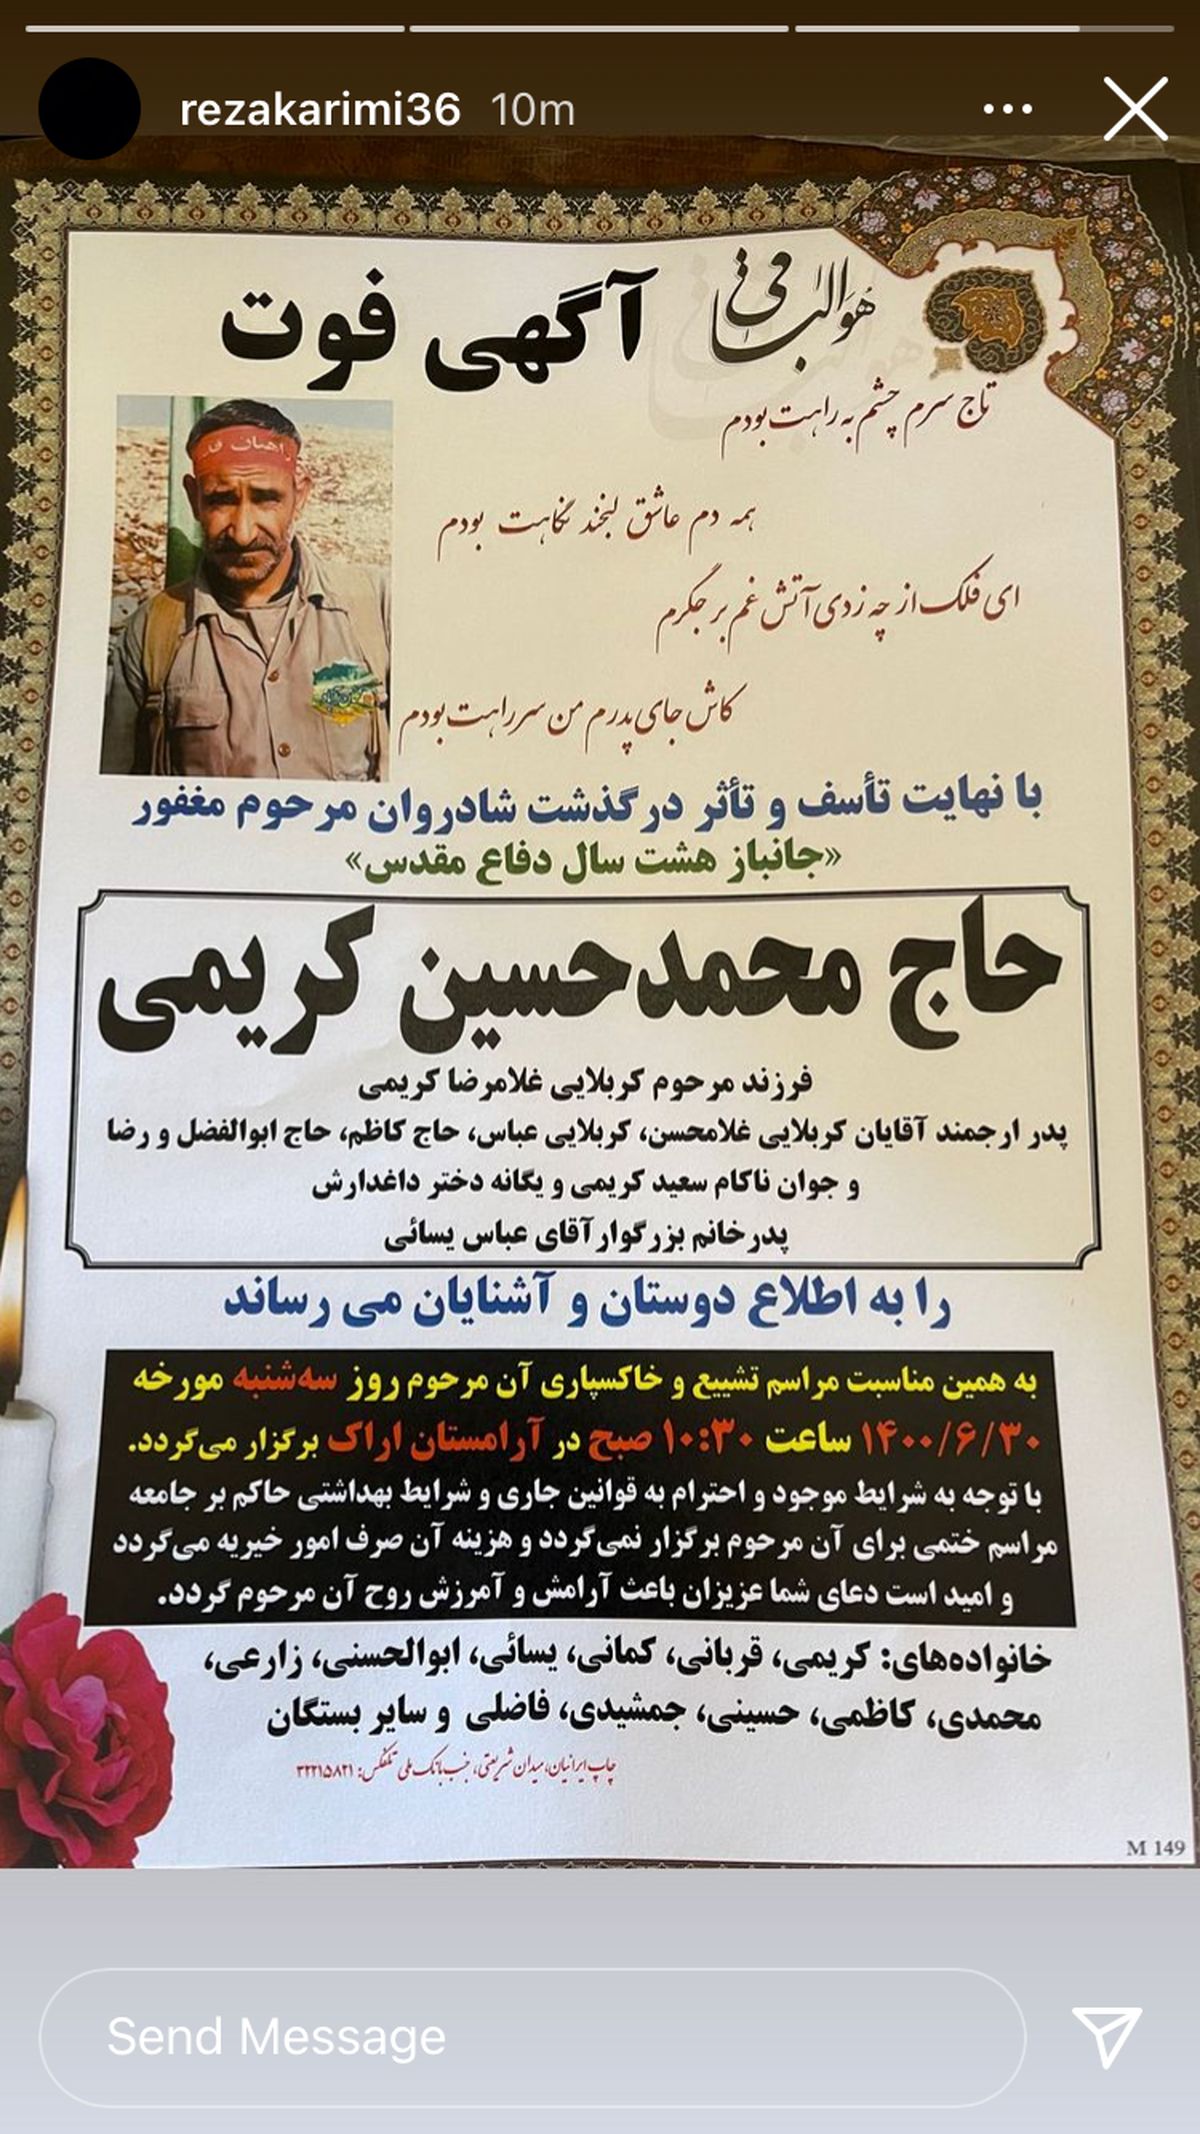 rezakarimi36 10m
هوالباقی
آگهی فوت
تاج سرم چشم به راهت بودم
همه دم عاشق لبخند نگاهت بودم
ای فلک از چه زدی آتش غم بر جگرم
کاش جای پدرم من سر راهت بودم
راهیان
با نهایت تأسف و تأثر درگذشت شادروان مرحوم مغفور
«جانباز هشت سال دفاع مقدس»
حاج محمدحسین کریمی
فرزند مرحوم کربلایی غلامرضا کریمی
پدر ارجمند آقایان کربلایی غلامحسن، کربلایی عباس، حاج کاظم، حاج ابوالفضل و رضا
و جوان ناکام سعید کریمی و یگانه دختر داغدارش
پدرخانم بزرگوار آقای عباس یسائی
را به اطلاع دوستان و آشنایان می رساند
به همین مناسبت مراسم تشییع و خاکسپاری آن مرحوم روز سه‌شنبه مورخه
۱۴۰۰/۶/۳۰ ساعت ۱۰:۳۰ صبح در آرامستان اراک برگزار می‌گردد.
با توجه به شرایط موجود و احترام به قوانین جاری و شرایط بهداشتی حاکم بر جامعه
مراسم ختمی برای آن مرحوم برگزار نمی‌گردد و هزینه آن صرف امور خیریه می‌گردد
و امید است دعای شما عزیزان باعث آرامش و آمرزش روح آن مرحوم گردد.
خانواده‌های: کریمی، قربانی، کمانی، یسائی، ابوالحسنی، زارعی،
محمدی، کاظمی، حسینی، جمشیدی، فاضلی و سایر بستگان
چاپ ایرانیان، میدان شریعتی، جنب بانک ملی تلفکس: ۳۲۲۱۵۸۲۱
M 149
Send Message